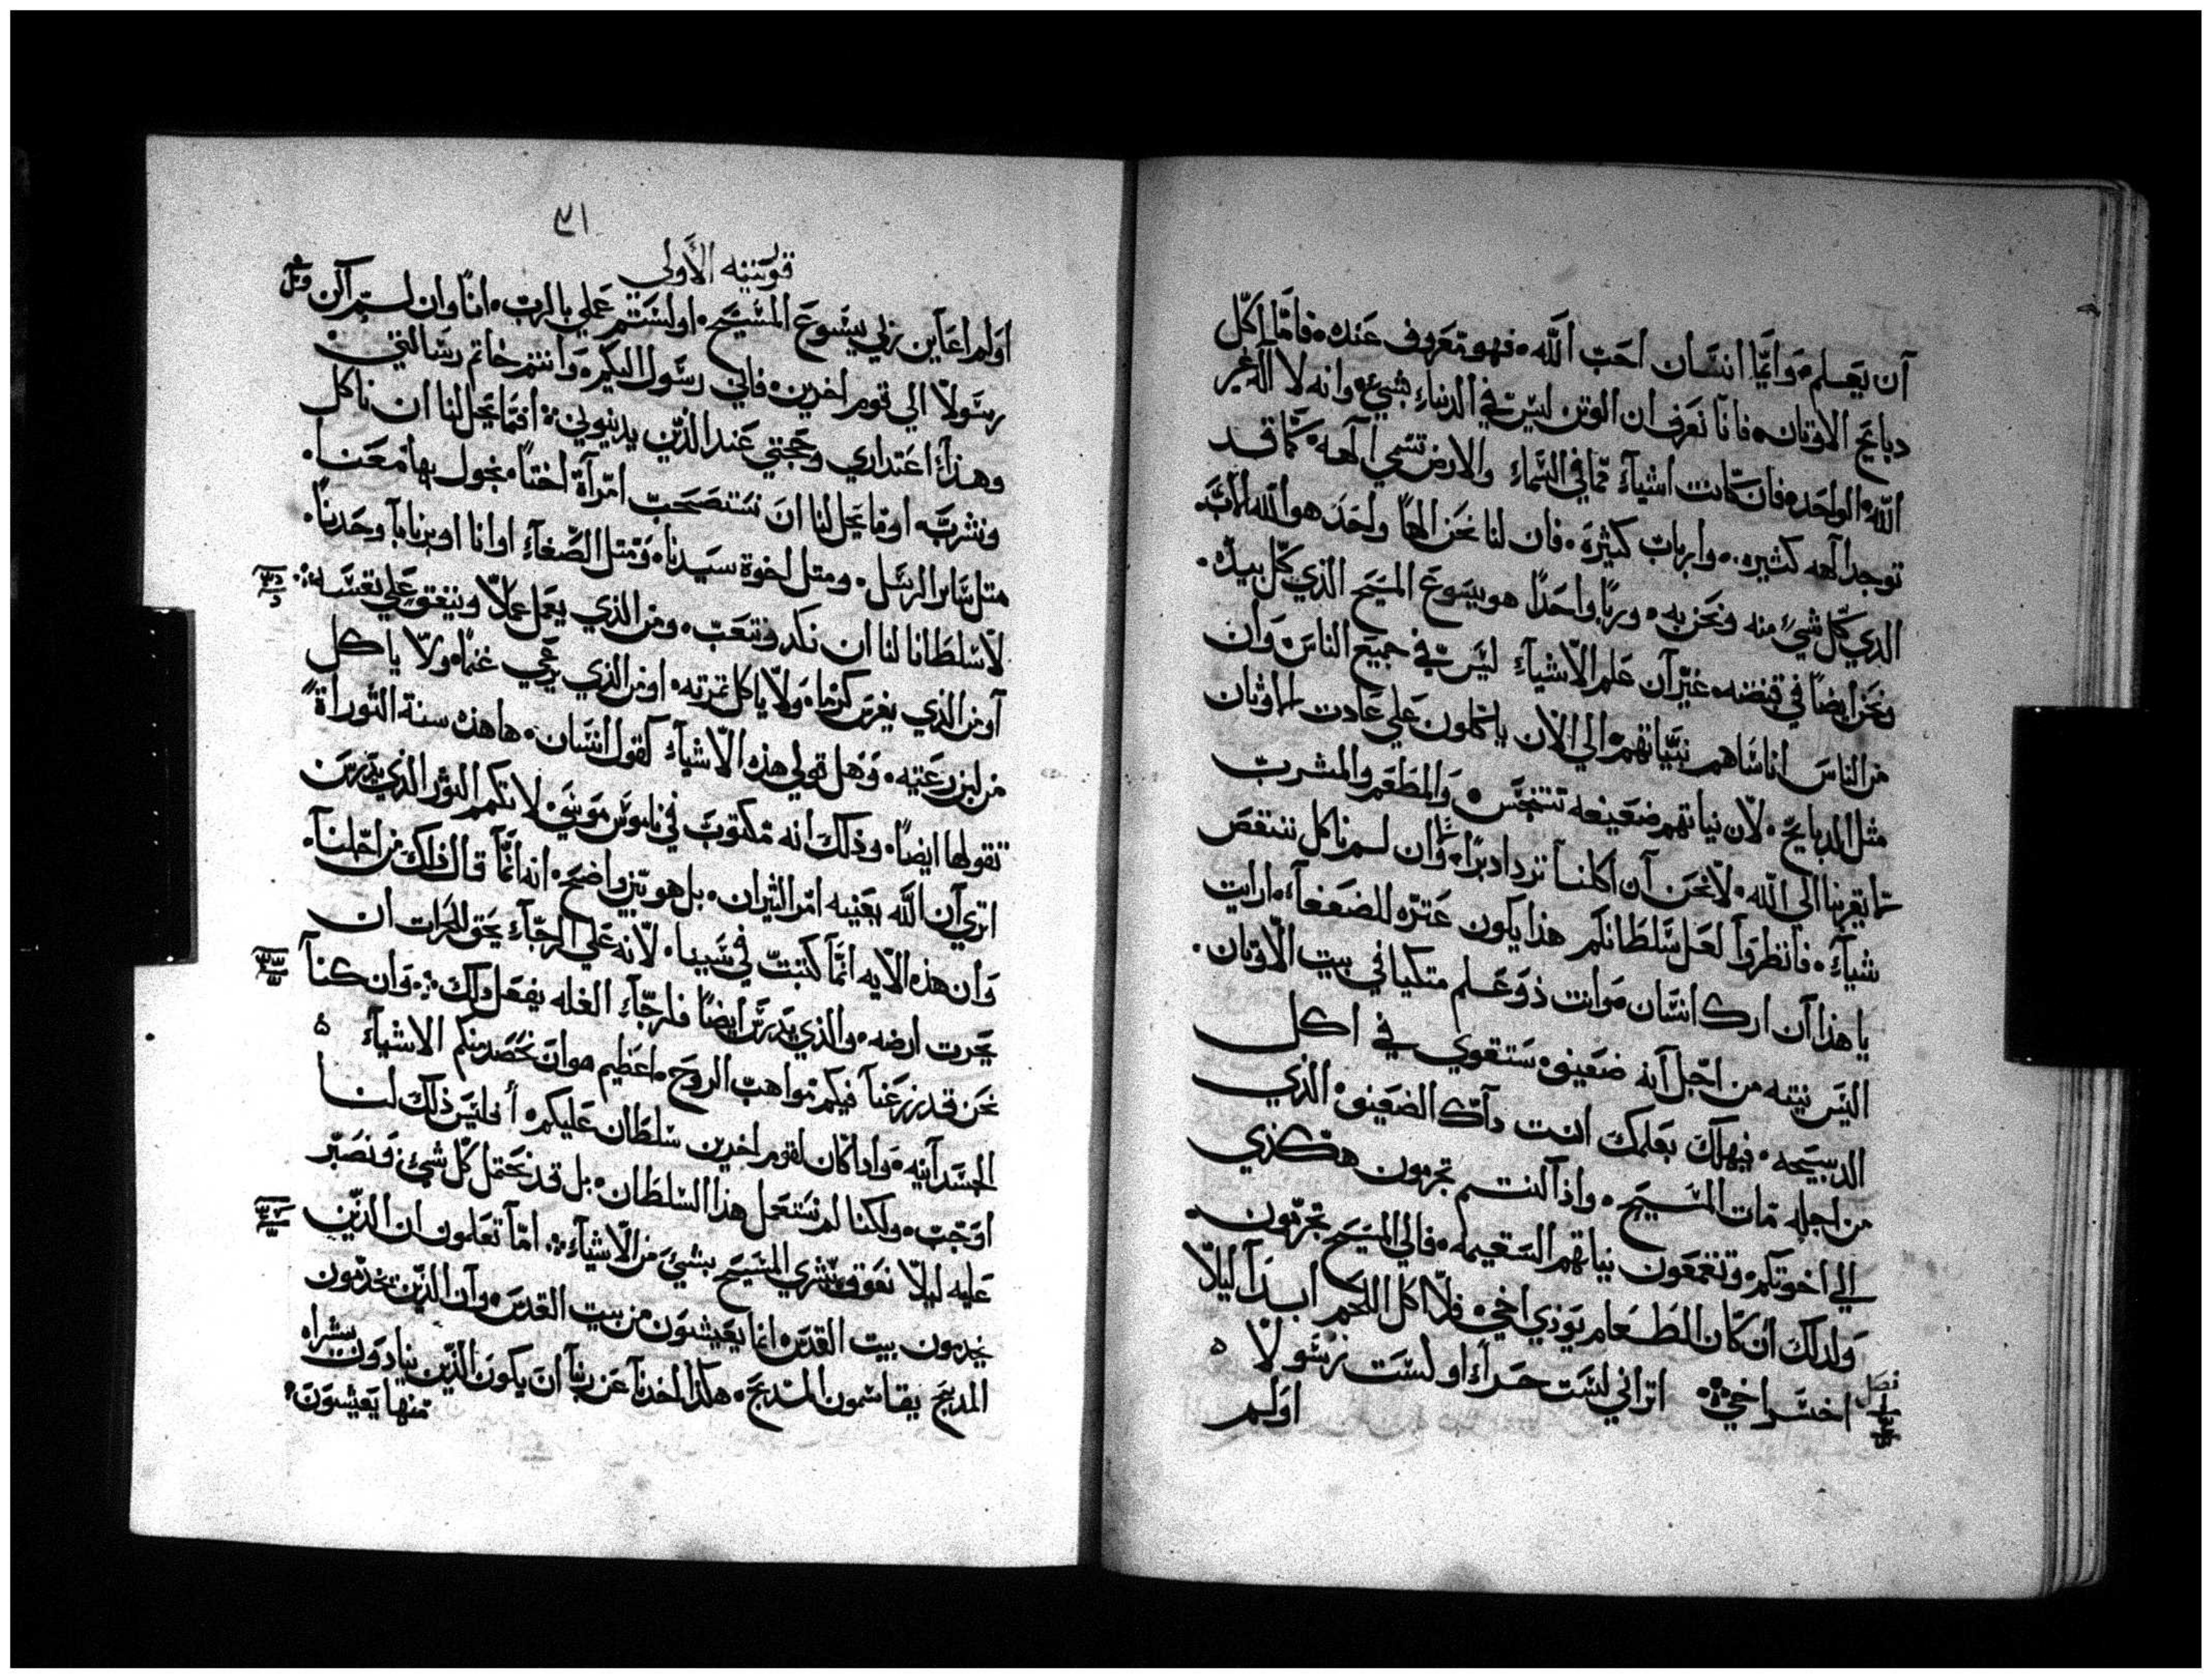 آن يعلم، وايما انسان احب الله، فهو معروف عنده، فاما اكل
دبايح الاوتان، فانا نعرف ان الوتن ليس في الدنياء بشيء، وانه لا اله غير
الله الواحد، فان كانت اشيآء مما في السماء والارض تسمي آلهه، كما قد
توجد آلهه كثيره، وارباب كثيرة، فان لنا نحن الهاً واحد هو الله الاب
الدي كل شيء منه ونحن به، ورباً واحداً هو يسوع المسيح الذي كل بيده،
ونحن ايضاً في قبضته، غير آن علم الاشيآء ليس في جميع الناس وان
من الناس اناسا هم بنياتهم الي الان ياكلون علي عادت الاوثان
مثل الدبايح، لان نياتهم ضعيفه تتنجس، والمطعم والمشرب
لا يقربنا الي الله، لا نحن آن اكلنا نزداد برًا، وان لم ناكل ننتقص
شيآء، فانظروآ لعل سلطانكم هذا يكون عثره للضعفآء، ارايت
يا هذا آن ارك انسان موانت ذو علم متكيا في بيت الاوتان،
اليس نيته من اجل آنه ضعيف، ستقوي في اكل
الدبيحه، فيهلك بعلمك انت دآك الضعيف، الذي
من اجله مات المسيح، واذا كنتم تجرمون هكذي
الي اخوتكم، وتقمعون نياتهم السقيمه، فالي المسيح تجرمون،
ولدلك ان كان الطعام يوذي اخي، فلا اكل اللحم ابداً ليلا
اخسر اخي، اتراني لست حراء او لست رسولا
فصل
اولم
٣١
قورنتيه الأولي
اولم اعاين ربي يسوع المسيح، اولستم عملي بالرب، انا وان لم آكن
رسولا الي قوم اخرين، فاني رسول اليكم، وانتم خاتم رسالتي
وهذا اعتداري وحجتي عند الذين يدينوني، افما يحل لنا ان ناكل
ونشرب، او ما يحل لنا ان نستصحب امرآة اختاً، تجول بها معنا،
مثل ساير الرسل، ومتل اخوة سيدنا، ومتل الصفآء او انا او برنابا وحدنا،
لا سلطانا لنا ان نكد ونتعب، ومن الذي يعمل عملا وينفق علي نفسه،
آو من الدي يغرس كرما، ولا ياكل تمرته، او من الذي يرعي غنما، ولا ياكل
من لبن رعيته، وهل قولي هذه الاشيآء كقول انسان، ها هذه سنة التوراة
تقولها ايضاً، وذلك انه مكتوب في ناموس موسي، لا تكم الثور الذي يدرس
اتري آن الله يعنيه امر الثيران، بل هو بين واضح، انه انما قال ذلك من اجلنا،
وآن هذه الايه انما كتبت في سببنا، لانه علي الرجآء يحق للحرات ان
يحرت ارضه، والذي يدرس ايضاً فلرجآء الغله يفعل ذلك، وان كنا
نحن قد زرعنا فيكم مواهب الروح، اعظيم هو ان نحصد منكم الاشيآء
الجسدآنيه، وادا كان لقوم اخرين سلطان عليكم، أفليس ذلك لنا
اوجب، ولكنا لم نستعمل هذا السلطان، بل قد نحتمل كل شيء ونصبر
عليه ليلا نعوق بشري المسيح بشيء من الاشيآء، اما تعلمون ان الذين
يخدمون بيت القدس، انما يعيشون من بيت القدس، وآن الذين يخدمون
المدبح يقاسمون المدبح، هكذا اخدنا عن ربنا ان يكون الذين ينادون بشراه
منها يعيشون،